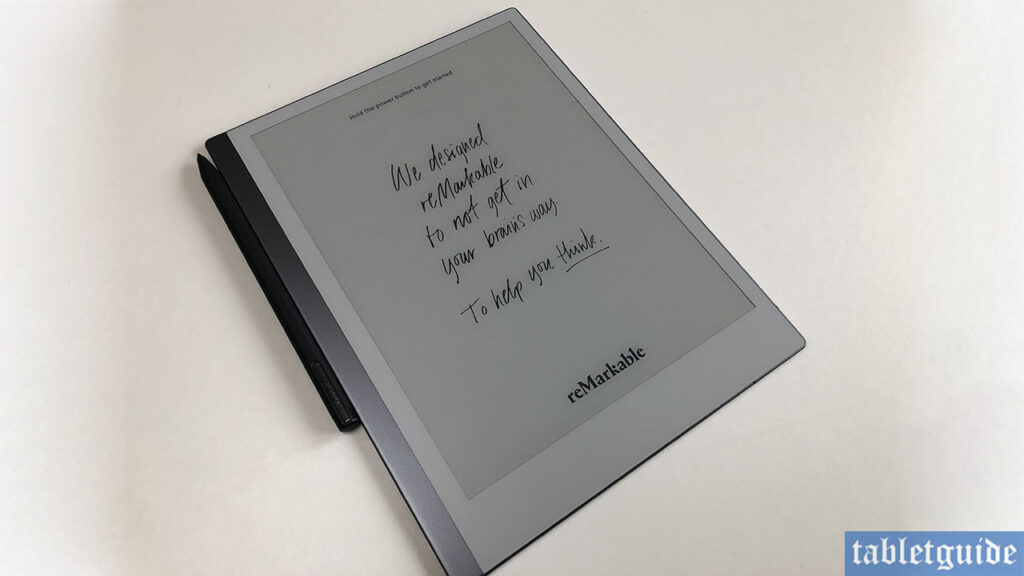 Hold the power button to get started
We designed
reMarkable
to not get in
your brain's way.
To help you think.
reMarkable
tabletguide